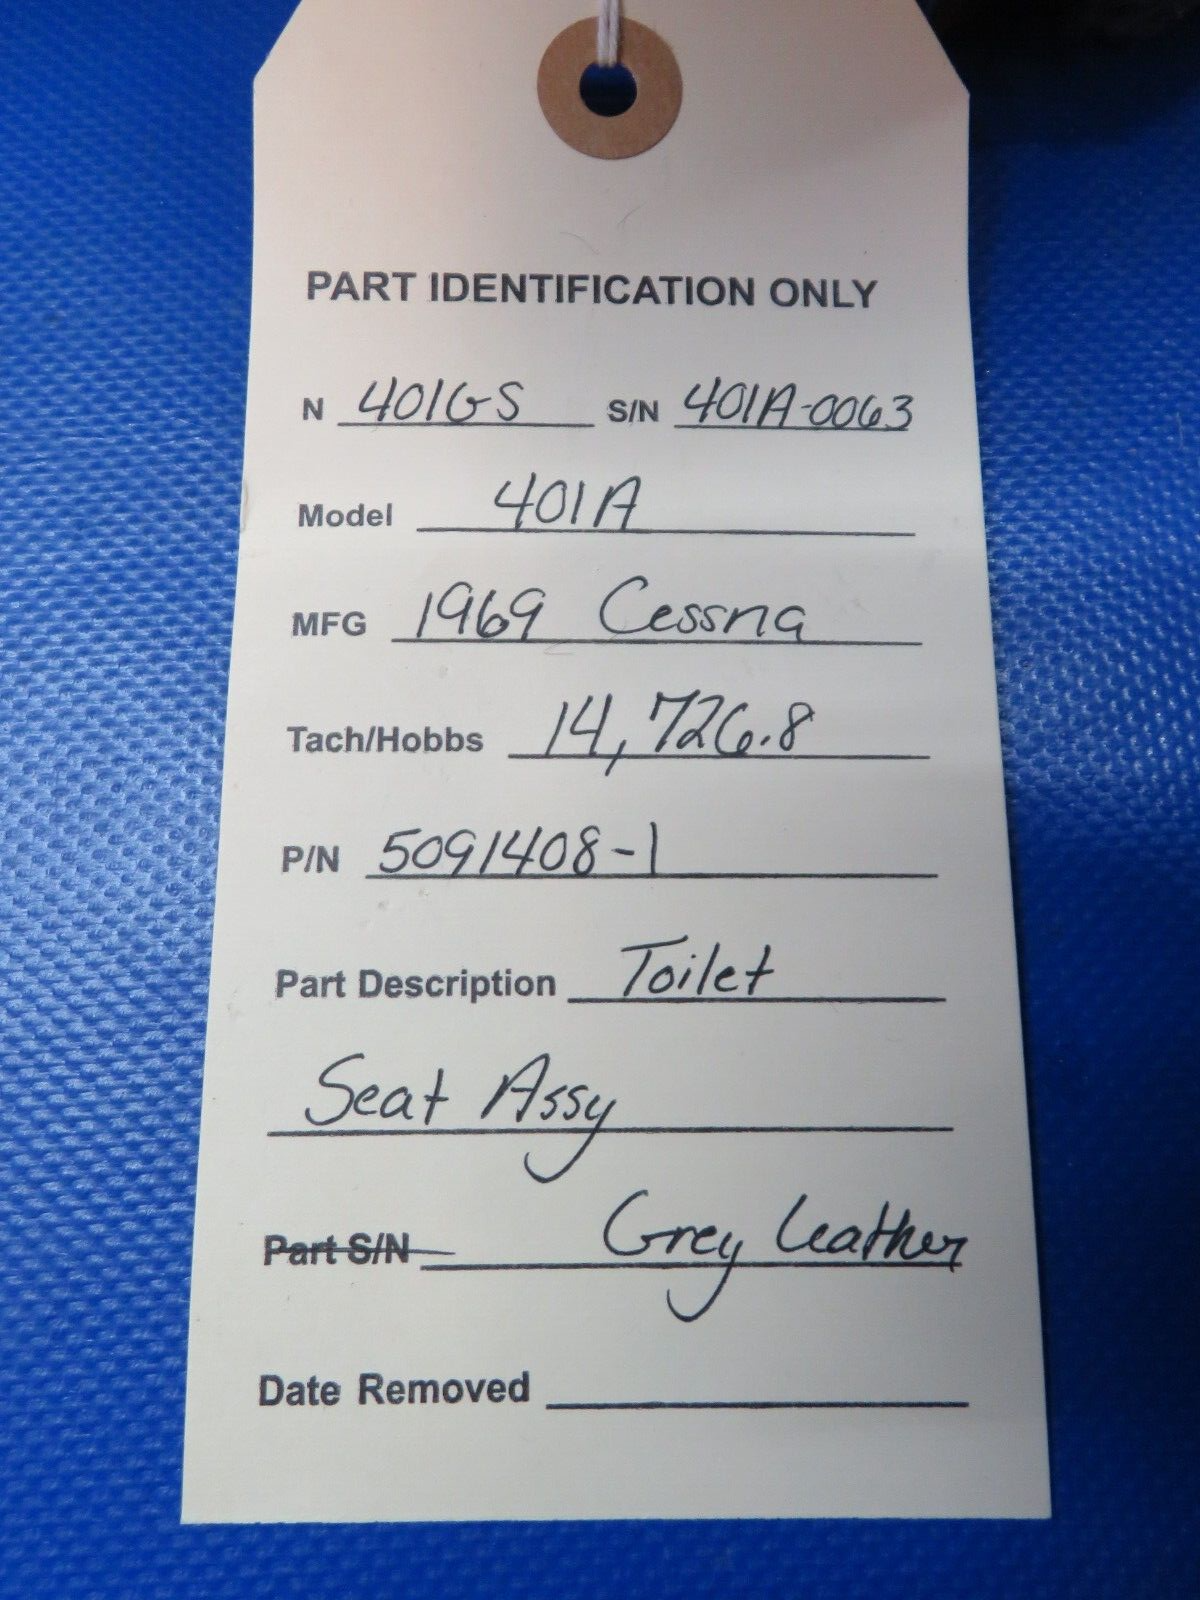 PART IDENTIFICATION ONLY
N 401GS S/N 401A-0063
Model 401A
MFG 1969 Cessna
Tach/Hobbs 14,726.8
P/N 5091408-1
Part Description Toilet
Seat Assy
Part S/N Grey Leather
Date Removed